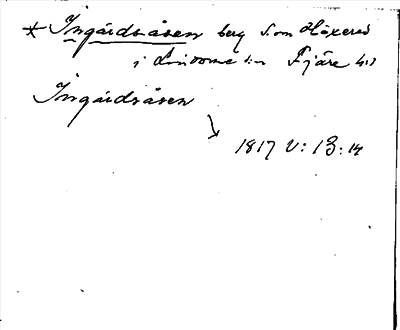 * Ingårdsåsen berg S om Häxered
i Lindome sn Fjäre hd
Ingårdsåsen
1817 V: 13: 14